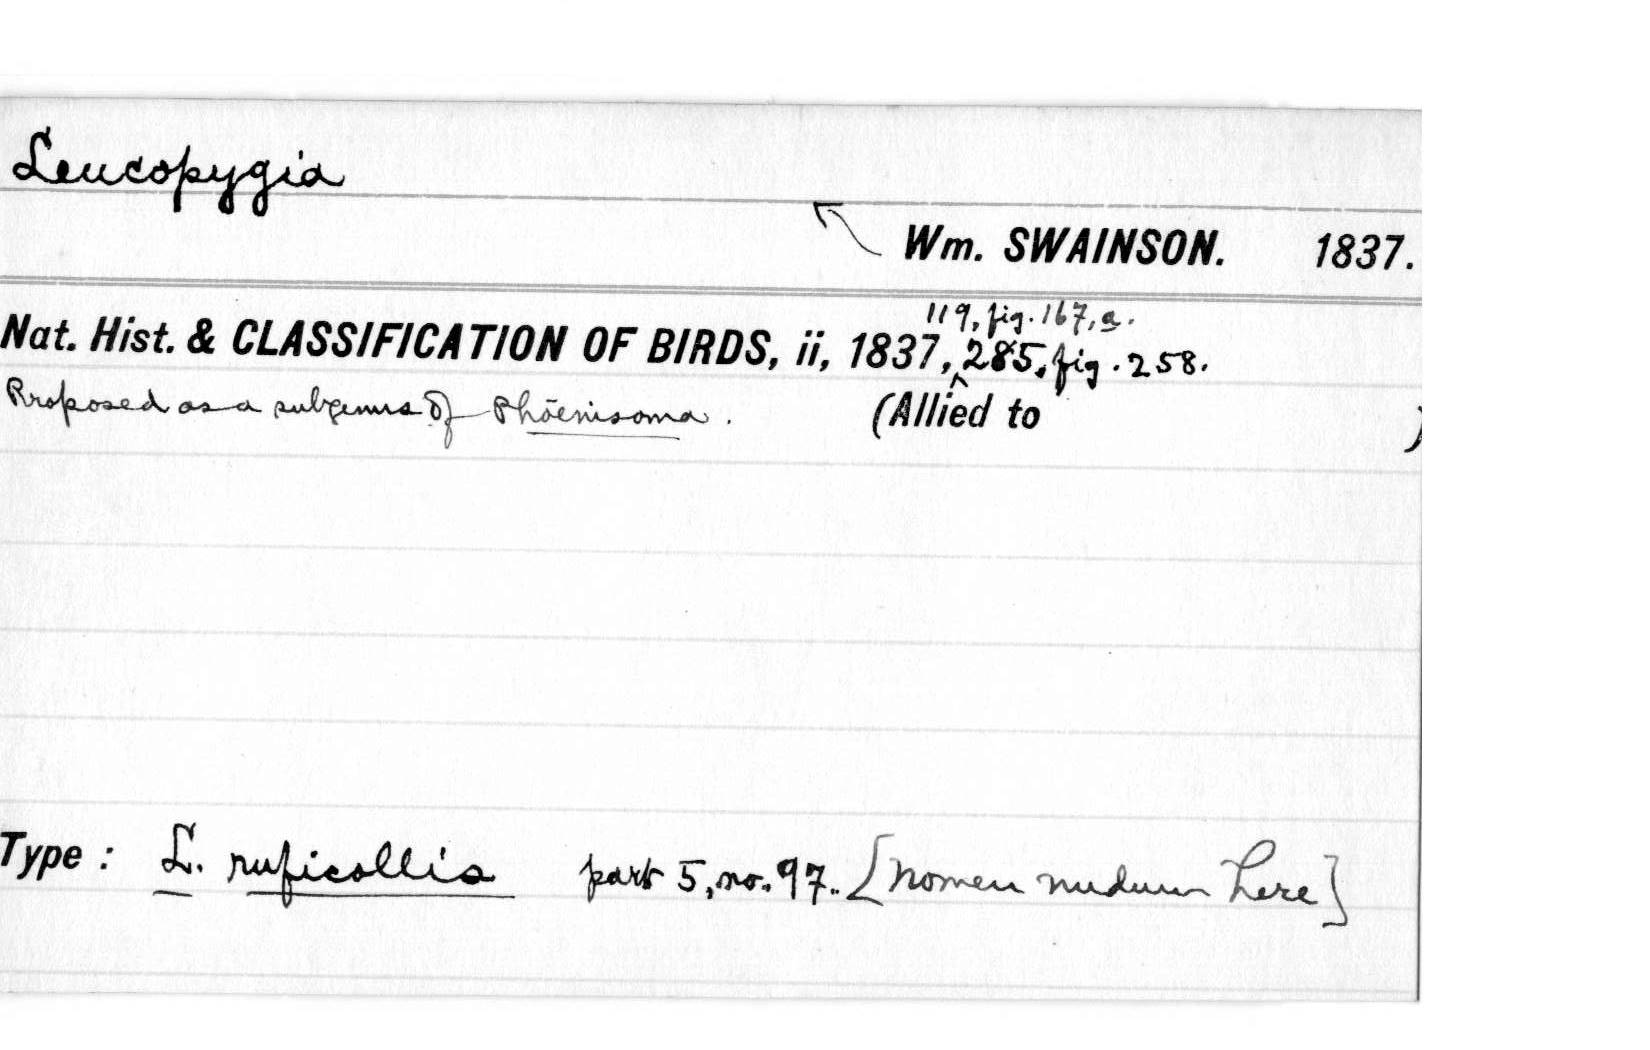 Leucopygia
Wm. SWAINSON. 1837.
119, fig. 167, a.
Nat. Hist. & CLASSIFICATION OF BIRDS, ii, 1837, 285, fig. 258.
Proposed as a subgenus of Phöenisoma. (Allied to )
Type : L. ruficollis part 5, no. 97. [nomen nudum here]